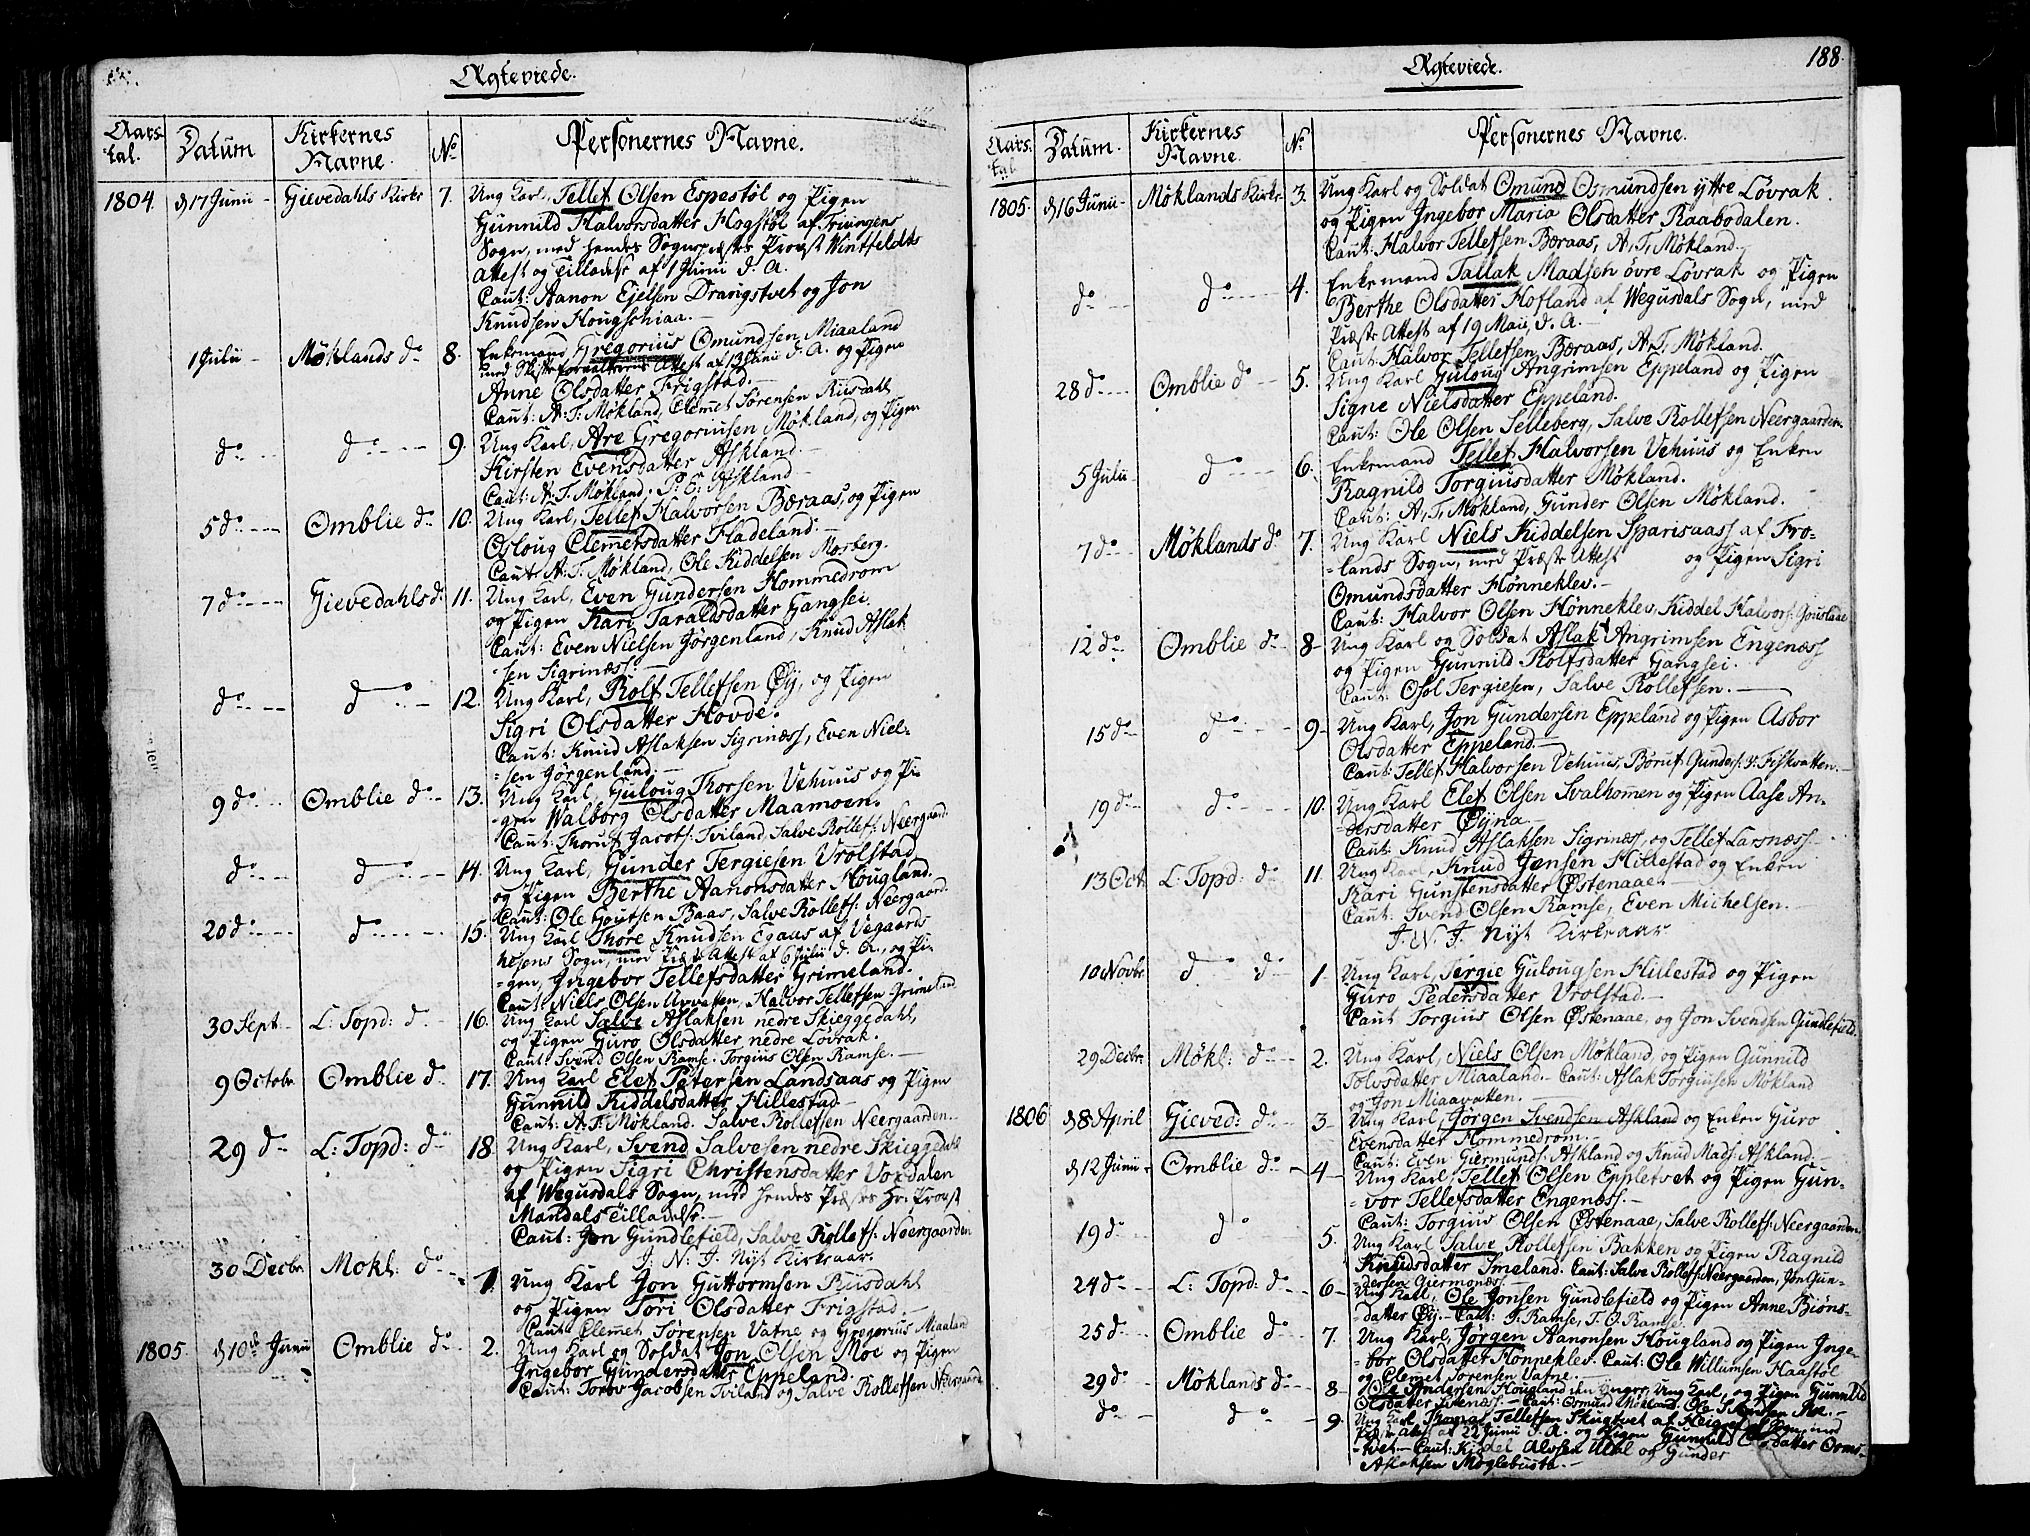 Ægteviede.
Aars- tal.	Datum	Kirkernes Navne.	No	Personernes Navne.
1804	d 17 Junii	Gievedahls Kirke	7.	Ung Karl, Tellef Olsen Espestøl og Pigen
Gunnild Halvorsdatter Hogstøl af Trungens
Sogn, med hendes Sognepræstes Provst Wintfeldts
Attest og Tilladelse af 1 Junii d. A.
Caut: Aanon Ejelsen Drangstvet og Jon
Knudsen Hougschiaa.
1 Julii	Møklands do	8.	Enkemand Gregorius Omundsen Miaaland
med Skifteforvalterens Attest af 13 Junii d. A. og Pigen
Anne Olsdatter Frigstad.
Caut: A. T. Møkland, Clemet Sørensen Riisdahl
do	do	9.	Ung Karl, Are Gregoriusen Møkland, og Pigen
Kirsten Evensdatter Askland.
Caut: A. T. Møkland. P. E. Askland
5 do	Omblie do	10.	Ung Karl, Tellef Halvorsen Beraas, og Pigen
Osloug Clemetsdatter Fladeland.
Caut: A. T. Møkland, Ole Kiddelsen Mosberg.
7 do	Gievedahls do	11.	Ung Karl, Even Gundersen Hommedrom
og Pigen Kari Taraldsdatter Gangsei
Caut: Even Nielsen Jørgenland, Knud Aslak-
sen Sigrinæss:
do	do	12.	Ung Karl, Rolf Tellefsen Øij, og Pigen
Sigri Olsdatter Hovde.
Caut: Knud Aslaksen Sigrinæss, Even Niel-
sen Jørgenland.
9 do	Omblie do	13.	Ung Karl Guloug Thorsen Vehuus og Pi-
gen Walborg Olsdatter Maamoen.
Caut: Thoruf Jacobs: Tviland, Salve Rollefs: Neergaarden
do	do	14.	Ung Karl, Gunder Tergiesen Vrolstad
og Pigen Berthe Aanonsdatter Hougland.
Caut: Ole Goutsen Baas, Salve Rollefs: Neergaard.
20 do	do	15.	Ung Karl Thore Knudsen Egaas af Vegaards
hesens Sogn, med Præste Attest af 6 Julii d. A., og Pi-
gen, Ingebor Tellefsdatter Grimeland.
Caut: Niels Olsen Upvatten, Halvor Tellefsen Grimeland
30 Sept	L: Topd: do	16.	Ung Karl Salve Aslaksen nedre Skieggedahl,
og Pigen Guro Olsdatter nedre Løvrak.
Caut: Svend Olsen Ramse. Torgius Olsen Ramse.
9 Octobr	Omblie do	17.	Ung Karl Elef Petersen Landsaas og Pigen
Gunnild Kiddelsdatter Hillestad
Caut: A. T. Møkland. Salve Rollefsen Neergaarden.
29 do	L: Topd: do	18.	Ung Karl, Svend Salvesen nedre Skieggedahl
og Pigen Sigri Christensdatter Vokdalen
af Wegusdals Sogn, med hendes Præstes Hr. Provst
Mandals Tilladelse.
Caut: Jon Gundlefield, Salve Rollefs: Neergaarden
J. N. J. Nyt Kirkeaar.
30 Decbr	Mokl: do	1.	Ung Karl Jon Guttormsen Riisdahl
og Pigen Tori Olsdatter Frigstad.
Caut: Clemet Sørensen Vatne og Gregorius Miaaland
1805	d 10de Junii	Omblie do	2.	Ung Karl og Soldat Jon Olsen Moe og Pigen
Ingebor Gundersdatter Eppeland.
Caut: Torov Jacobsen Tviland og Salve Rollefsen Neergaarden
Ægteviede.	188
Aars- tal	Datum.	Kirkernes Navne.	No	Personernes Navne.
1805.	d 16 Junii	Møklands Kirke	3.	Ung Karl og Soldat Omund Osmundsen ytre Løvrak.
og Pigen Ingebor Maria Olsdatter Raabodalen.
Caut: Halvor Tellefsen Beraas, A, T, Møkland.
do	do	4.	Enkemand Tallak Madsen øvre Løvrak og Pigen
Berthe Olsdatter Hofland af Wegusdals Sogn, med
Præste Attest af 19 Maii, d. A.
Caut: Halvor Tellefsen Beraas, A, T, Møkland.
28 do	Omblie do	5.	Ung Karl Guloug Angrimsen Eppeland og Pigen
Signe Nielsdatter Eppeland.
Caut: Ole Olsen Selleberg, Salve Rollefsen Neergaarden.
5 Julii	do	6.	Enkemand Tellef Halvorsen Vehuus og Enken
Ragnild Torgiusdatter Møkland.
Caut: A, T, Møkland, Gunder Olsen Møkland.
7 do	Møklands do	7.	Ung Karl Niels Kiddelsen Sparisaass af Fro-
lands Sogn, med Præste Attest og Pigen Sigri
Omundsdatter Hønneklev.
Caut: Halvor Olsen Hønneklev, Kiddel Halvors: Jouslaae
12 do	Omblie do	8	Ung Karl og Soldat Aslak Angrimsen Engenæss
og Pigen Gunnild Rolfsdatter Gangsei.
Caut: Osol Tergiesen, Salve Rollefsen.
15 do	do	9	Ung Karl, Jon Gundersen Eppeland og Pigen Asbor
Olsdatter Eppeland.
Caut: Tellef Halvorsen Vehuus, Boruf Gunders: y. Fiskvatten.
19 do	do	10.	Ung Karl Elef Olsen Svalhommen og Pigen Aase An-
dersdatter Øijna.
Caut: Knud Aslaksen Sigrinæss, og Tellef Larsnæss.
13 Oct	L: Topd: do	11	Ung Karl, Knud Jensen Hillestad og Enken
Kari Gunstensdatter Østenaae.
Caut: Svend Olsen Ramse, Even Michelsen.
J. N. J. Nyt Kirkeaar
10 Novbr	do do	1	Ung Karl, Tergie Gulougsen Hillestad og Pigen
Guro Pedersdatter Vrolstad.
Caut Torgius Olsen Østenaae, og Jon Svendsen Gundlefield.
29 Decbr.	Møkl: do	2.	Ung Karl, Niels Olsen Møkland, og Pigen Gunnild
Tolvsdatter Miaaland. Caut: Aslak Torgiusen Møkland
og Jon Miaavatten.
1806	d 8 April	Gieved: do	3	Ung Karl, Jørgen Svendsen Askland og Enken Guro
Evensdatter Hommedrom.
Caut: Even Giermunds: Askland og Knud Mads: Askland.
d 12 Junii	Omblie do	4	Ung Karl, Tellef Olsen Eppletvet og Pigen Gun-
vor Tellefsdatter Engenæss.
Caut: Torgius Olsen Østenaae, Salve Rollefs: Neergaarden.
19 do	do	5.	Ung Karl Salve Rollefsen Bakken og Pigen Ragnild
Knudsdatter Smeland. Caut: Salve Rollefs: Neergaarden, Jon Gun-
dersen Giermonæs.
24 do	L: Topd: do	6	Ung Karl, Ole Jonsen Gundlefield og Pigen Anne Biøns-
datter Øij. Caut: S. Ramse, T. O. Ramse.
25 do	Omblie do	7.	Ung Karl, Jørgen Aanonsen Hougland og Pigen Inge-
bor Olsdatter Hønneklev. Caut: Ole Willumsen Haastøl
og Clemet Sørensen Vatne.
29 do	Møklands do	8	Ole Andersen Hougland den yngre, Ung Karl, og Pigen Gunnild
Olsdatter Svenæss. Caut: Osmund Møkland, Ole
do	do	9	Ung Karl Thomas Tellefsen Skugtvet af Sogn, med
Præste Attest af 22 Junii d. A. og Pigen Gunnild Olsdatter Orms-
tvet. Caut: Kiddel Alvsen Ulul og Gunder
Aslaksen Moglebustø.